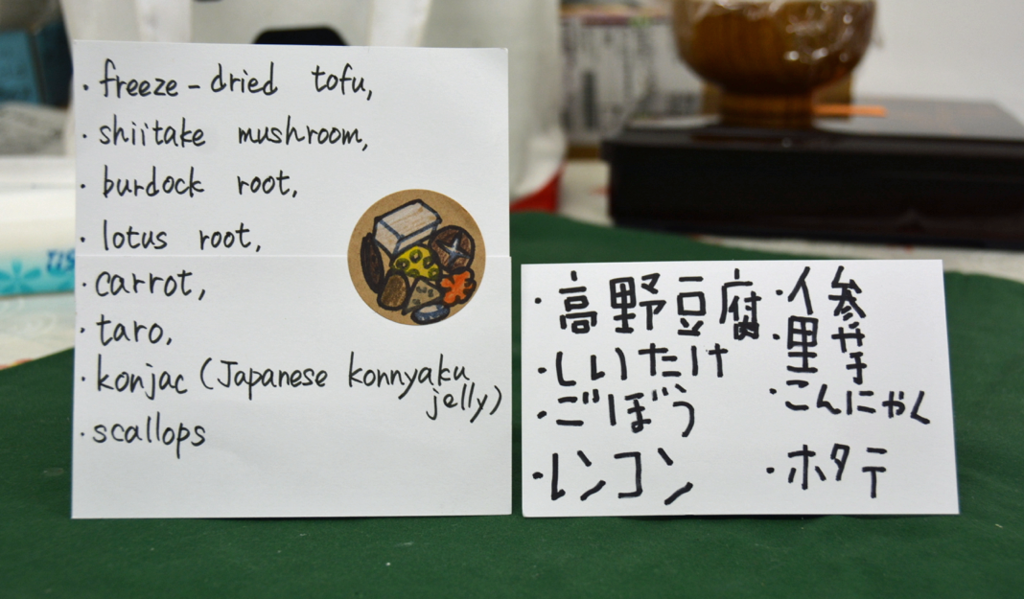 · freeze-dried tofu,
· shiitake mushroom,
· burdock root,
· lotus root,
· carrot,
· taro,
· konjac (Japanese konnyaku
jelly)
· scallops
· 高野豆腐
· しいたけ
· ごぼう
· レンコン
· 人参
· 里芋
· こんにゃく
· ホタテ